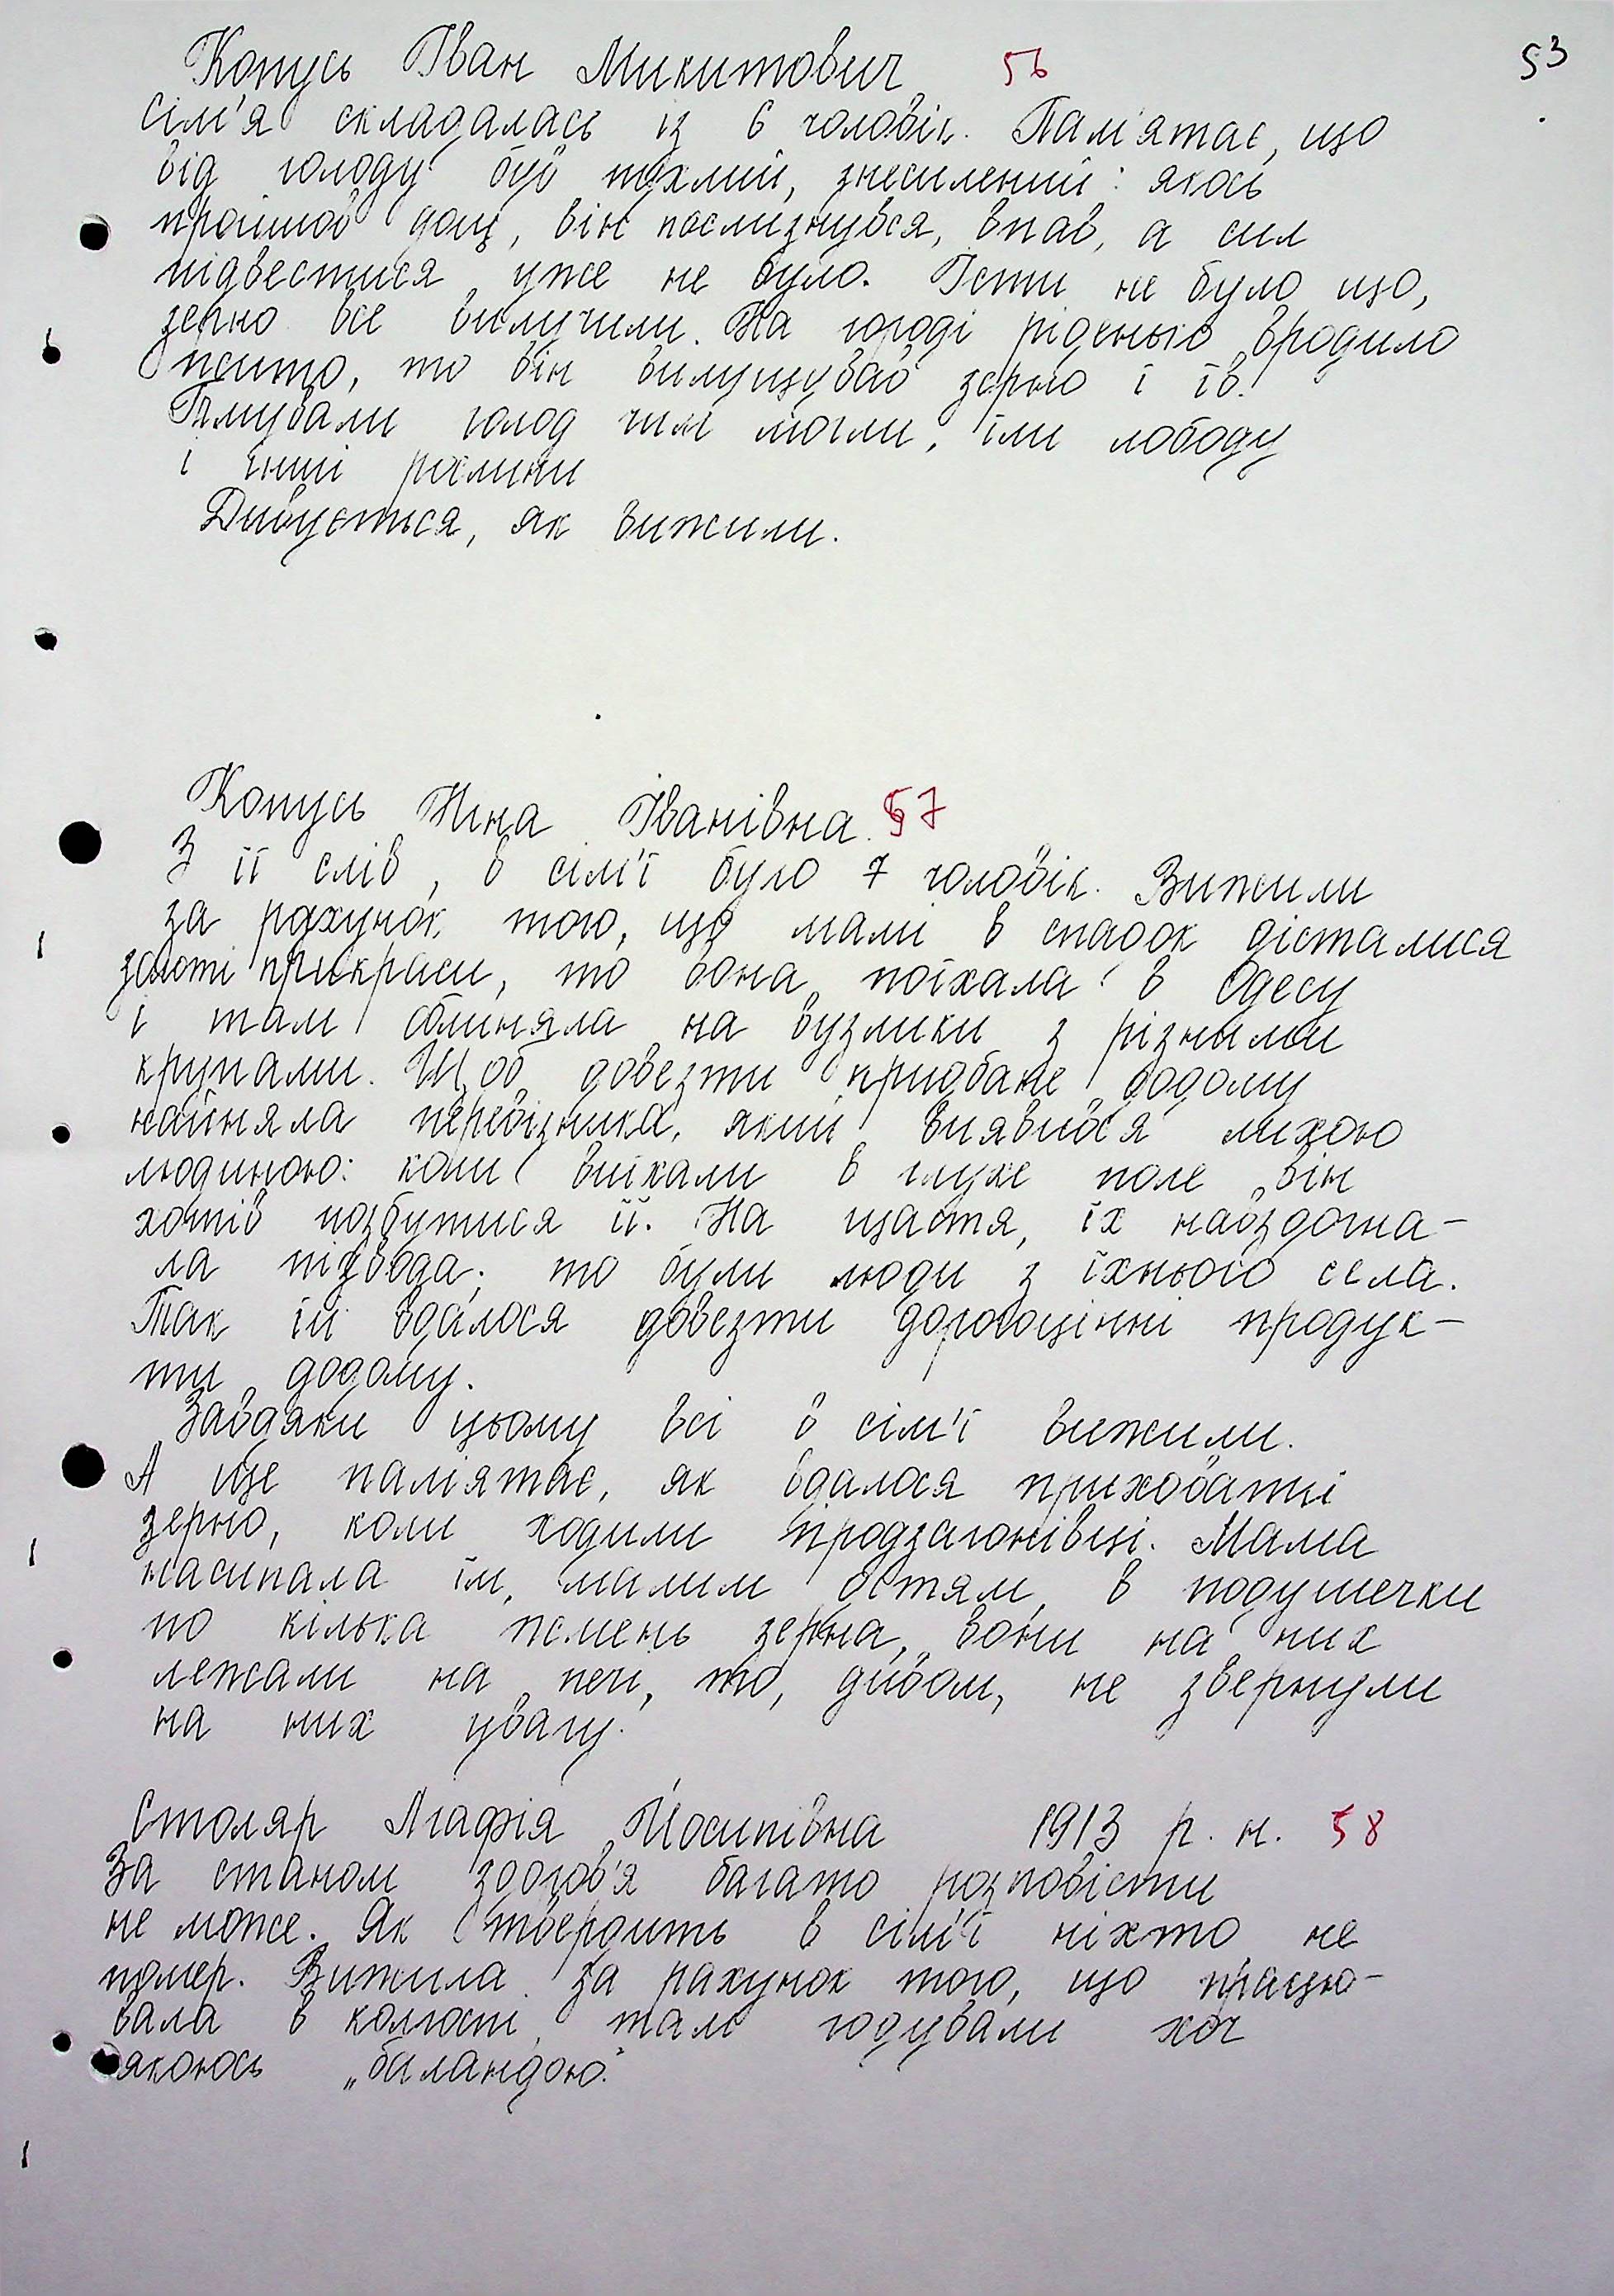 53
Копусь Іван Микитович 56
Сім'я складалась із 6 чоловік. Пам'ятає, що
від голоду був пухлий, знесилений: якось
пройшов дощ, він послизнувся, впав, а сил
підвестися уже не було. Їсти не було що,
зерно все вилучили. На городі ріденько вродило
жито, то він вилущував зерно і їв.
Тамували голод чим могли, їли лободу
і інші рослини
Дивується, як вижили.
Копусь Ніна Іванівна. 57
З її слів, в сім'ї було 7 чоловік. Вижили
за рахунок того, що мамі в спадок дісталися
золоті прикраси, то вона поїхала в Одесу
і там обміняла на вузлики з різними
крупами. Щоб довезти придбане додому
найняла перевізника, який виявився лихою
людиною: коли виїхали в глухе поле він
хотів позбутися її. На щастя, їх наздогна-
ла підвода; то були люди з їхнього села.
Так їй вдалося довезти дорогоцінні продук-
ти додому.
Завдяки цьому всі в сім'ї вижили.
А ще пам'ятає, як вдалося приховати
зерно, коли ходили продзагонівці. Мама
насипала їм, малим дітям, в подушечки
по кілька жмень зерна, вони на них
лежали на печі, то, дивом, не звернули
на них увагу.
Столяр Агафія Йосипівна 1913 р. н. 58
За станом здоров'я багато розповісти
не може. Як твердить в сім'ї ніхто не
помер. Вижила за рахунок того, що працю-
вала в колгоспі, там годували хоч
якоюсь „баландою."